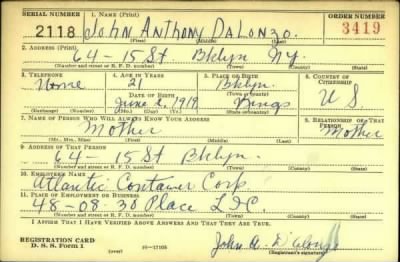 SERIAL NUMBER 1. NAME (Print) ORDER NUMBER
2118 John Anthony DaLonzo. 3419
(First) (Middle) (Last)
2. ADDRESS (Print)
64 - 15 St. Bklyn NY.
(Number and street or R. F. D. number) (Town) (County) (State)
3. TELEPHONE 4. AGE IN YEARS 5. PLACE OF BIRTH 6. COUNTRY OF CITIZENSHIP
None 21 Bklyn.
DATE OF BIRTH (Town or county)
June 2, 1919 Kings U S
(Exchange) (Number) (Mo.) (Day) (Yr.) (State or country)
7. NAME OF PERSON WHO WILL ALWAYS KNOW YOUR ADDRESS 8. RELATIONSHIP OF THAT PERSON
Mother Mother
(Mr., Mrs., Miss) (First) (Middle) (Last)
9. ADDRESS OF THAT PERSON
64 - 15 St Bklyn.
(Number and street or R. F. D. number) (Town) (County) (State)
10. EMPLOYER'S NAME
Atlantic Container Corp.
11. PLACE OF EMPLOYMENT OR BUSINESS
48-08-30 Place L.I.C.
(Number and street or R. F. D. number) (Town) (County) (State)
I AFFIRM THAT I HAVE VERIFIED ABOVE ANSWERS AND THAT THEY ARE TRUE.
REGISTRATION CARD
D. S. S. Form 1 (over) 16—17105 John A. D'Alonzo
(Registrant's signature)